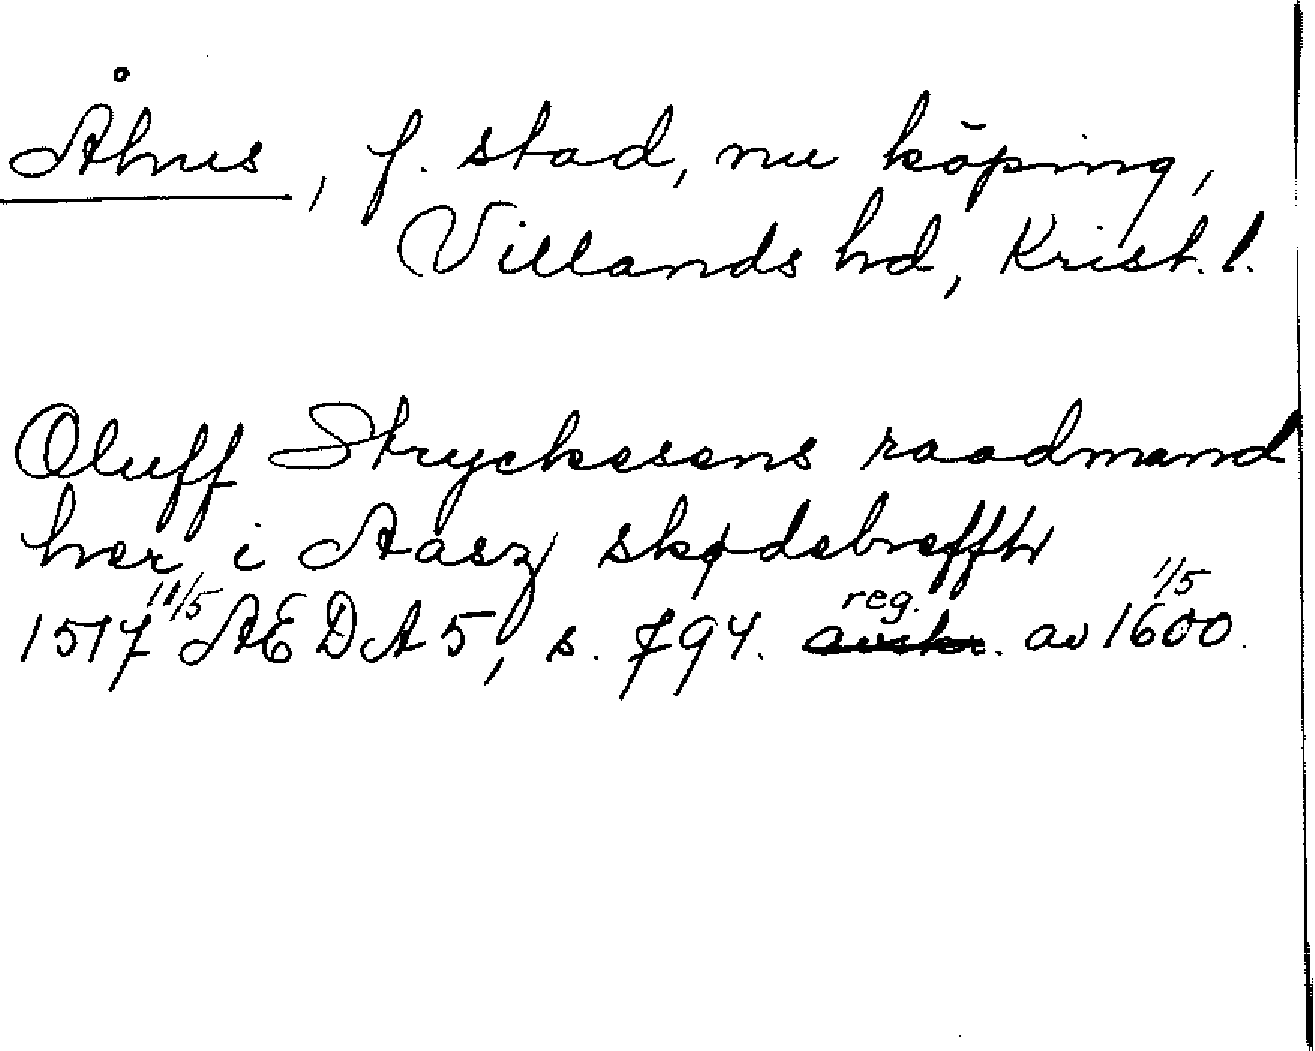 Åhus, f. stad, nu köping,
Villands hd, Krist. l.
Oluff Stryckesens raadmand
her i Aasz skødebreffh
1517 11/5 AEDA 5, s. 794. reg. av 1600 1/5.